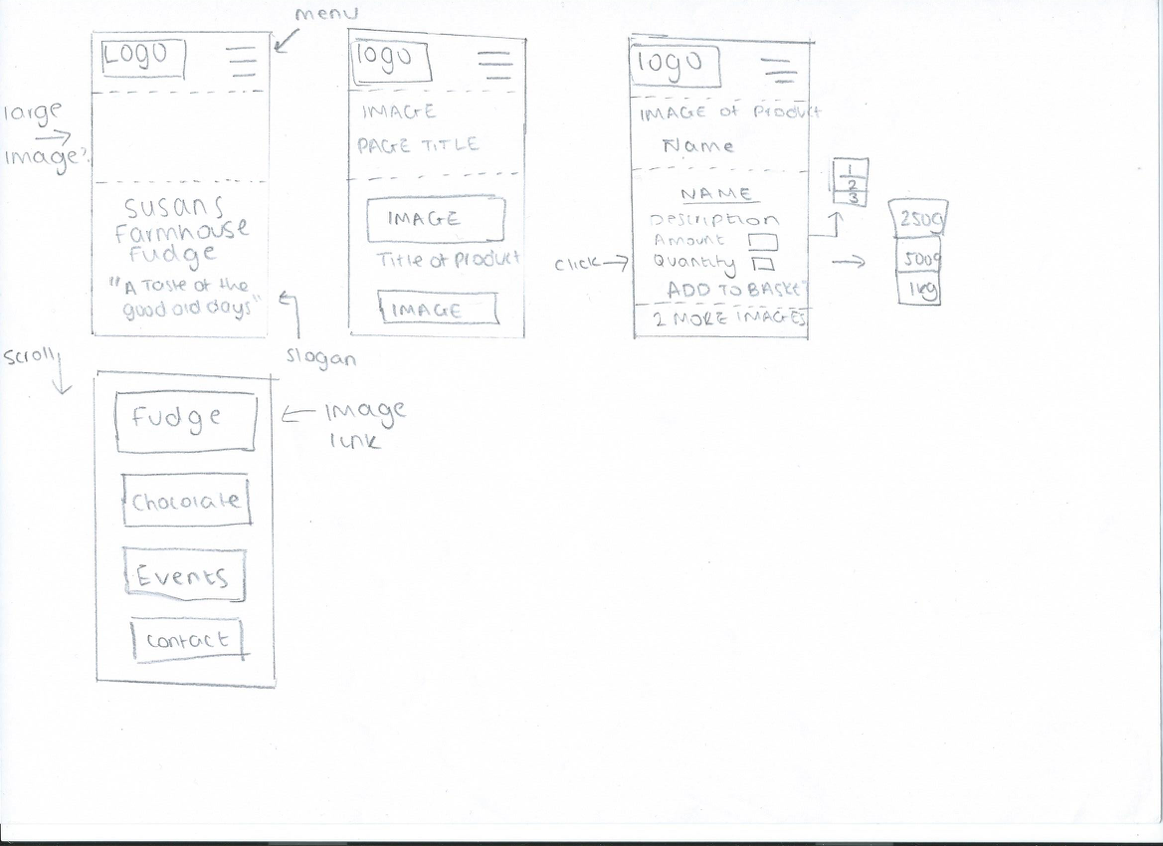 menu
LOGO
large
image?
susans
Farmhouse
Fudge
"A Taste of the
good old days"
slogan
scroll
Fudge
Image
link
Chocolate
Events
contact
logo
IMAGE
PAGE TITLE
IMAGE
Title of product
IMAGE
logo
IMAGE of product
Name
NAME
Description
Amount
click
Quantity
ADD TO BASKET
2 MORE IMAGES
1
2
3
250g
500g
1kg